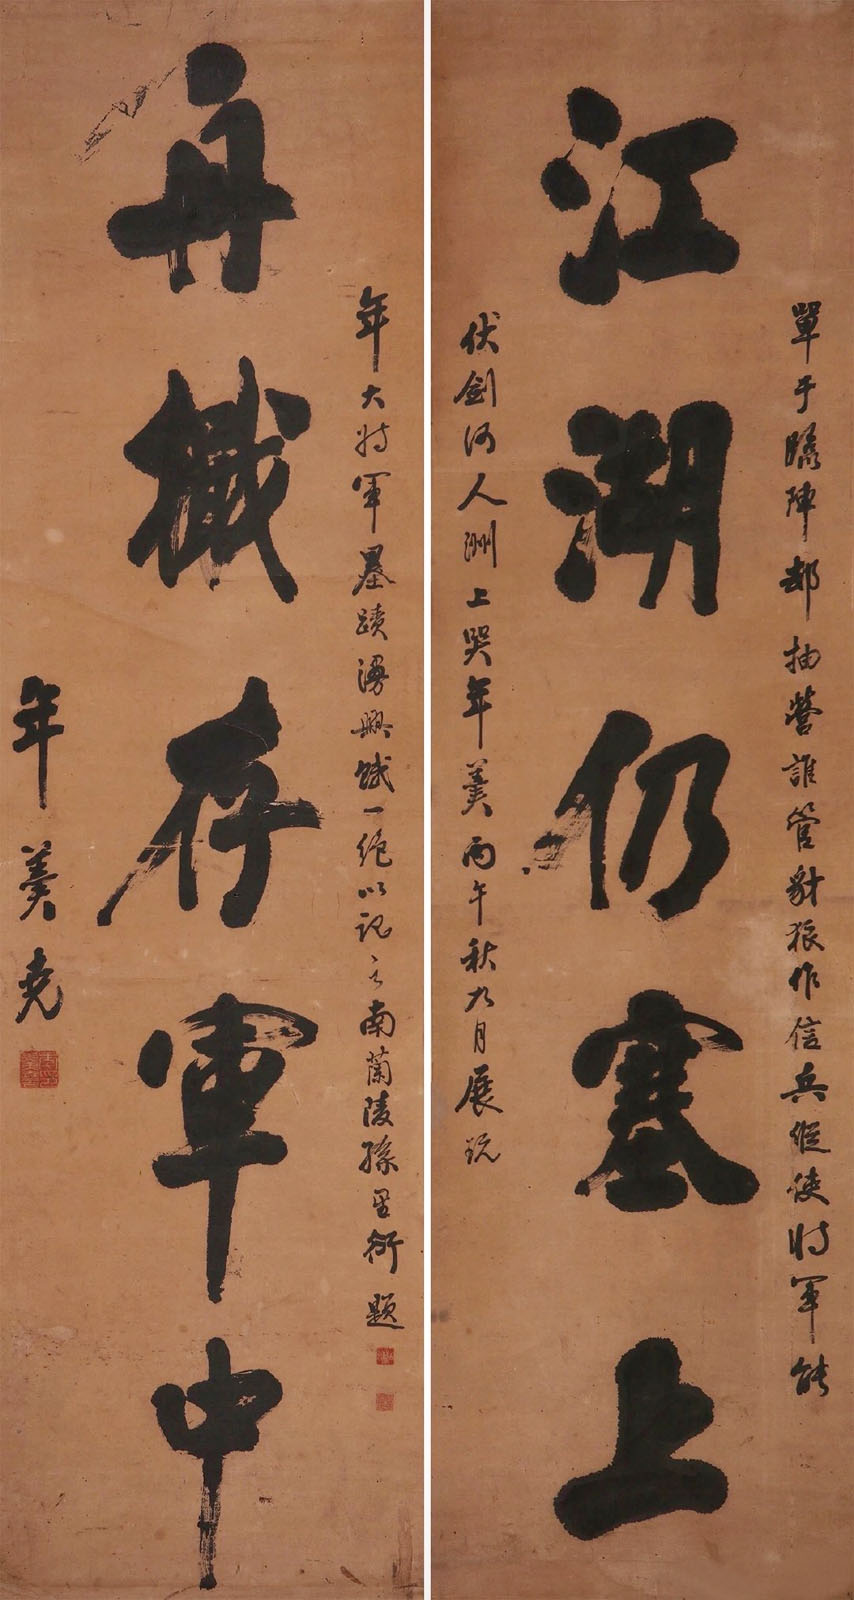 單于臨陣却抽營誰管豺狼作信兵縱使將軍能
江湖仍塞上
伏劍何人淵上哭年羹丙午秋九月展玩
年大將軍墨蹟湧興賦一絕以記之南蘭陵孫星衍題
舟檝存軍中
年羹堯